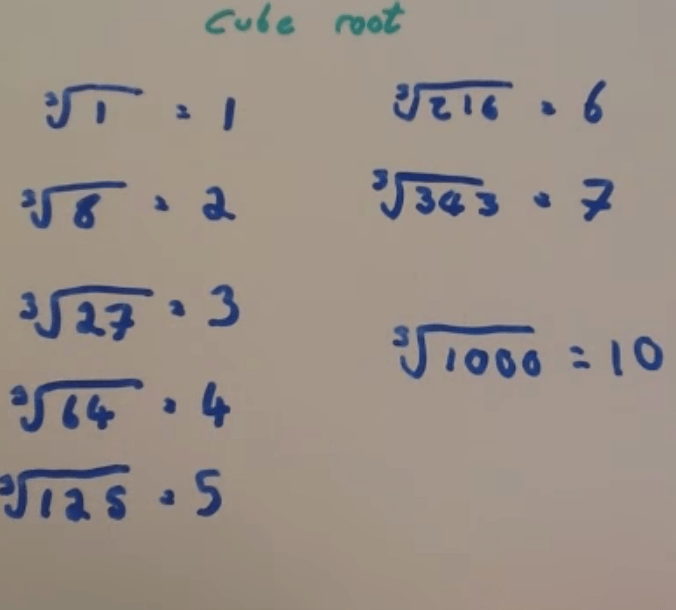 Cube root
∛1 = 1
∛8 = 2
∛27 = 3
∛64 = 4
∛125 = 5
∛216 = 6
∛343 = 7
∛1000 = 10